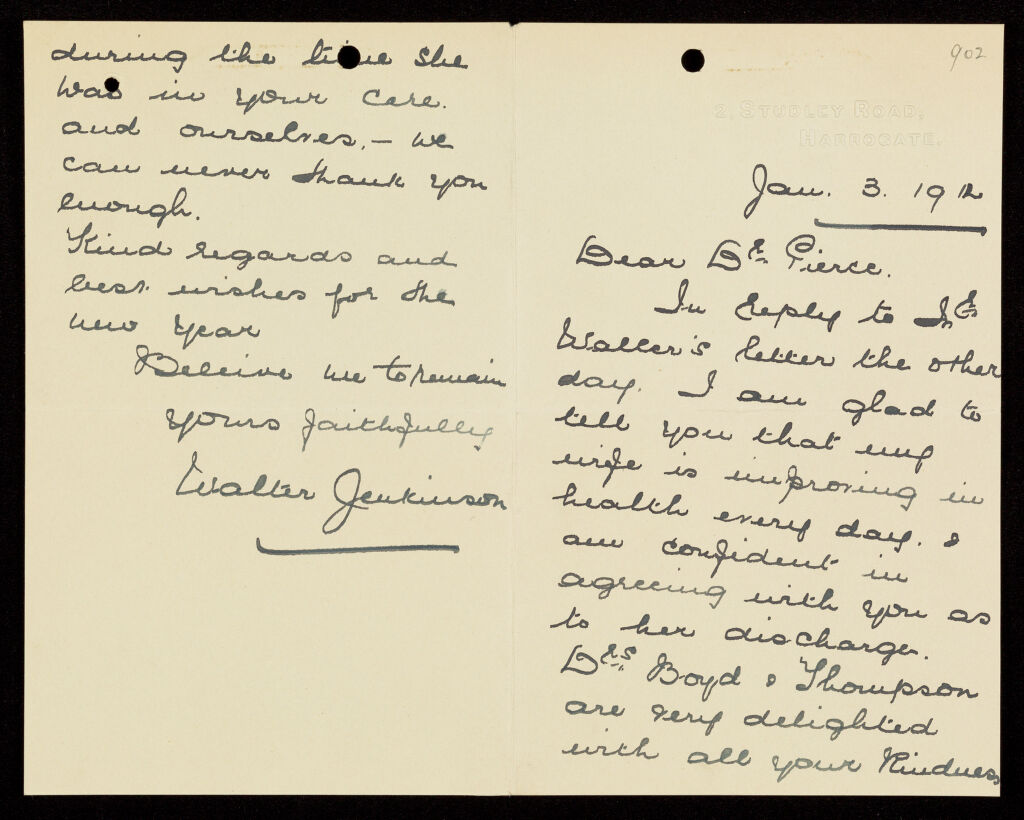 902
2, STUDLEY ROAD,
HARROGATE.
Jan. 3. 1912
Dear Dr. Pierce.
In reply to Dr.
Waller's letter the other
day. I am glad to
tell you that my
wife is improving in
health every day. &
am confident in
agreeing with you as
to her discharge.
Drs. Boyd & Thompson
are very delighted
with all your kindness
during the time she
was in your care.
and ourselves, - we
can never thank you
enough.
Kind regards and
best wishes for the
new year
Believe me to remain
yours faithfully
Walter Jenkinson